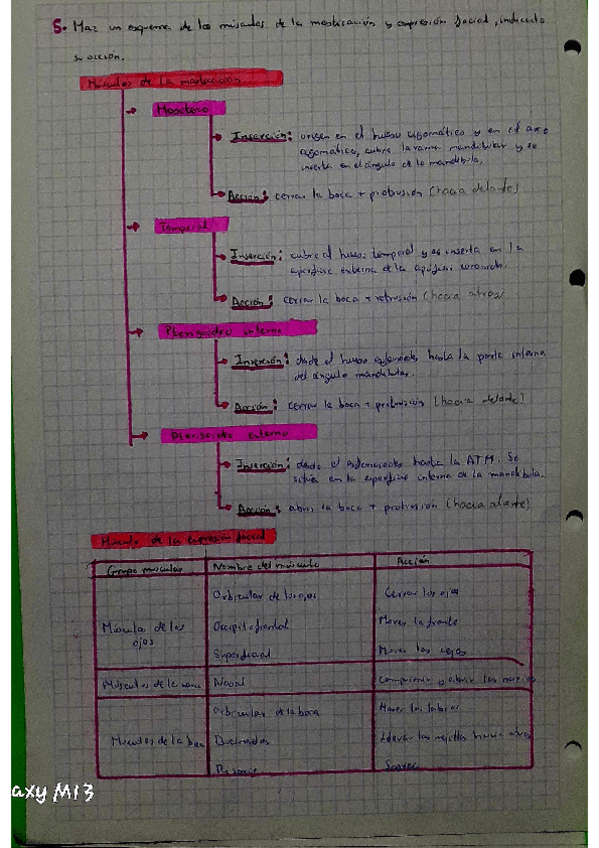 5. Haz un esquema de los músculos de la masticación y expresión facial, indicando
su acción.
Músculos de la masticación
Masetero
Inserción: origen en el hueso cigomático y en el arco
cigomático, cubre la rama mandibular y se
inserta en el ángulo de la mandíbula.
Acción: cerrar la boca + protrusión (hacia delante)
Temporal
Inserción: cubre al hueso temporal y se inserta en la
externa de la apófisis coronoides.
Acción: cerrar la boca + retrusión (hacia atrás)
Pterigoideo interno
Inserción: desde el hueso esfenoides hasta la parte interna
del ángulo mandibular.
Acción: cerrar la boca + protrusión (hacia delante)
Pterigoideo externo
Inserción: desde el esfenoides hasta la ATM. Se
sitúa en la superficie interna de la mandíbula.
Acción: abrir la boca + protrusión (hacia alante)
Músculos de la expresión facial
Grupo muscular Nombre del músculo Acción
Orbicular de los ojos Cerrar los ojos
Músculos de los Occipitofrontal Mover la frente
ojos
Superficial Mover las cejas
Músculos de la Nasal Comprimir y abrir las
Orbicular de la boca Mover los labios
Músculos de la boca las mejillas hacia
axy M13